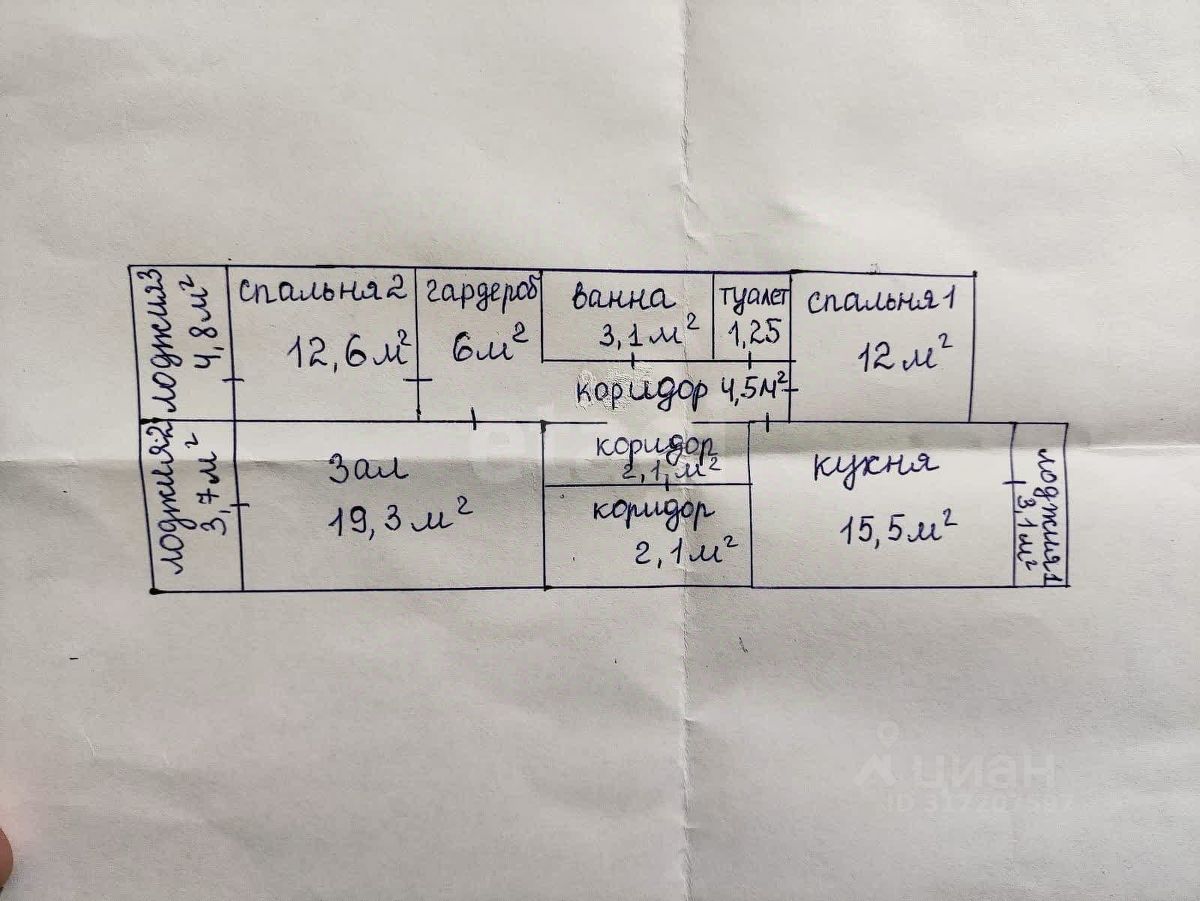 лоджия3
4,8м²
спальня2
12,6м²
гардероб
6м²
ванна
3,1м²
туалет
1,25
спальня1
12м²
коридор 4,5м²
лоджия2
3,7м²
зал
19,3м²
коридор
2,1м²
коридор
2,1м²
кухня
15,5м²
лоджия1
3,1м²
циан